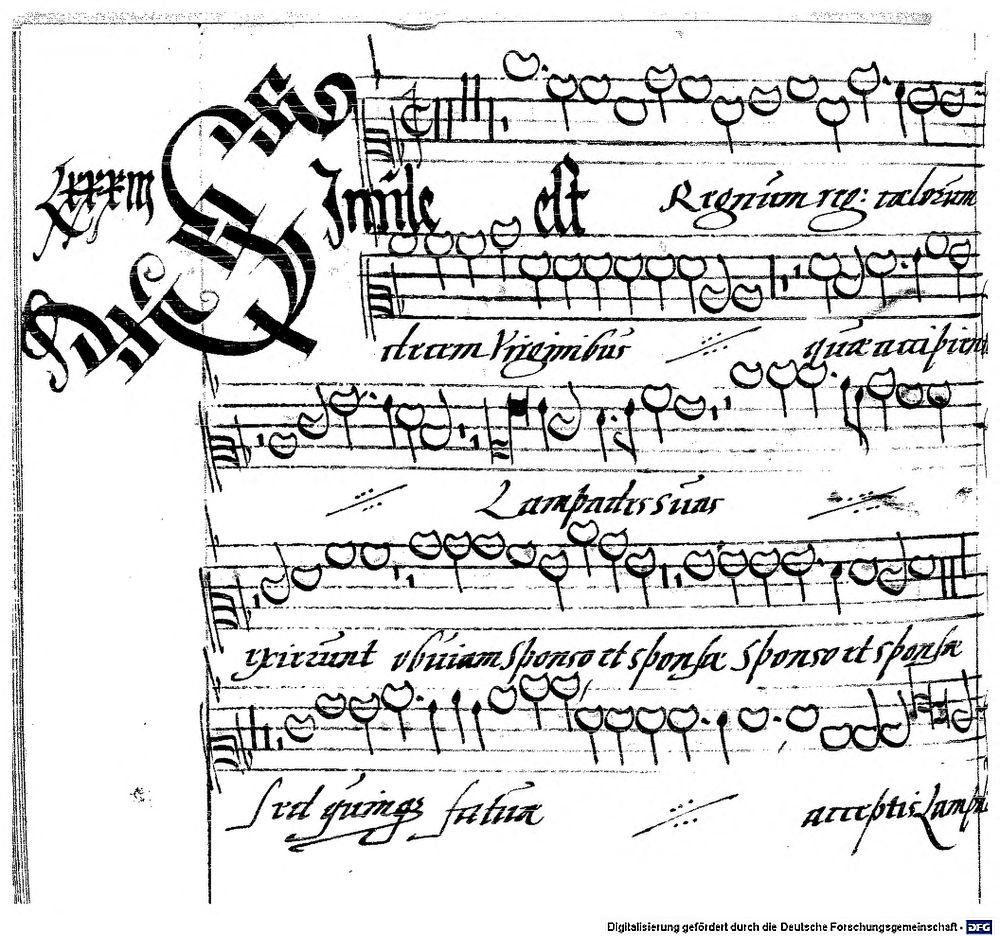 Lxxxiii
Simile est Regnum reg: cœlorum
decem Virginibus quæ accipient
Lampades suas
exierunt obuiam Sponso et sponsæ Sponso et sponsæ
Sed quinqz fatuæ acceptis Lampa
Digitalisierung gefördert durch die Deutsche Forschungsgemeinschaft - DFG